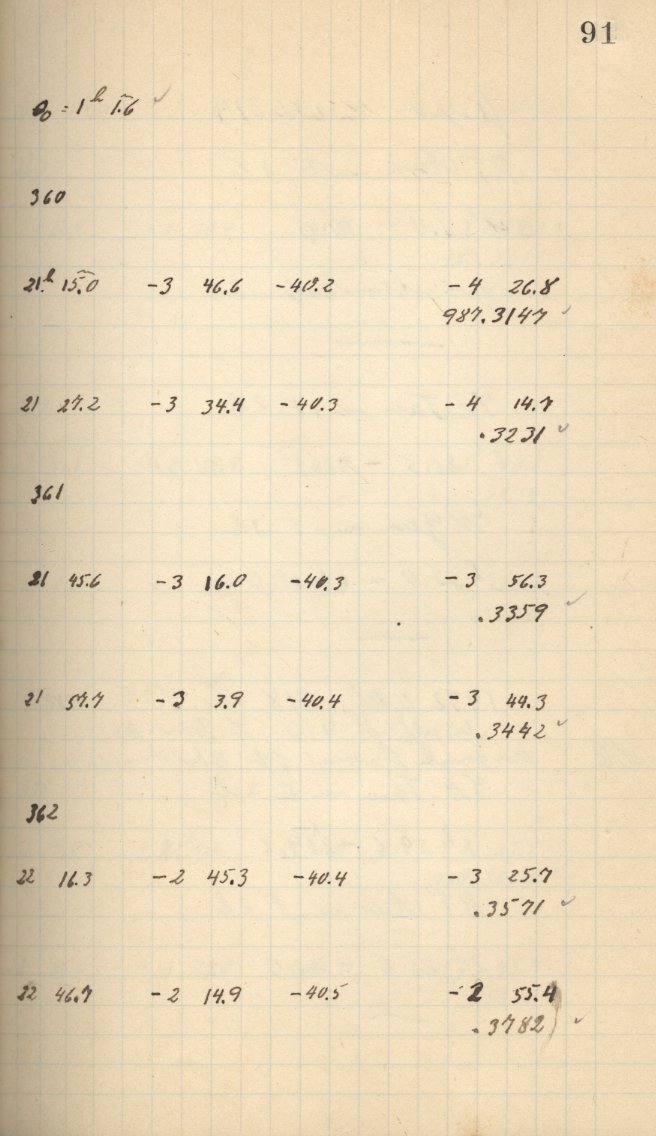 91
θ₀ = 1ʰ 1ᵐ.6 ✓
360
21ʰ 15ᵐ.0 -3 46.6 -40.2 -4 26.8
987.3147 ✓
21 27.2 -3 34.4 -40.3 -4 14.7
.3231 ✓
361
21 45.6 -3 16.0 -40.3 -3 56.3
.3359 ✓
21 57.7 -3 3.9 -40.4 -3 44.3
.3442 ✓
362
22 16.3 -2 45.3 -40.4 -3 25.7
.3571 ✓
22 46.7 -2 14.9 -40.5 -2 55.4
.3782 ✓